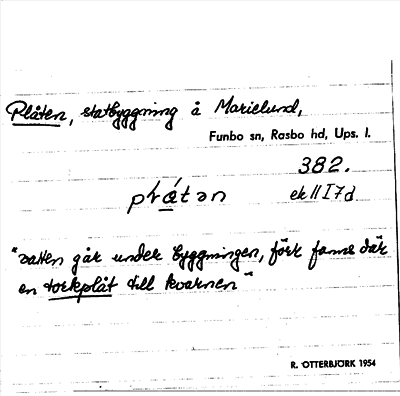 Plåten, statbyggning å Marielund,
Funbo sn, Rasbo hd, Ups. l.
382.
plåtən ek II I 7 d
"vatten går under byggningen, förr fanns där
en torkplåt till kvarnen"
R. OTTERBJÖRK 1954